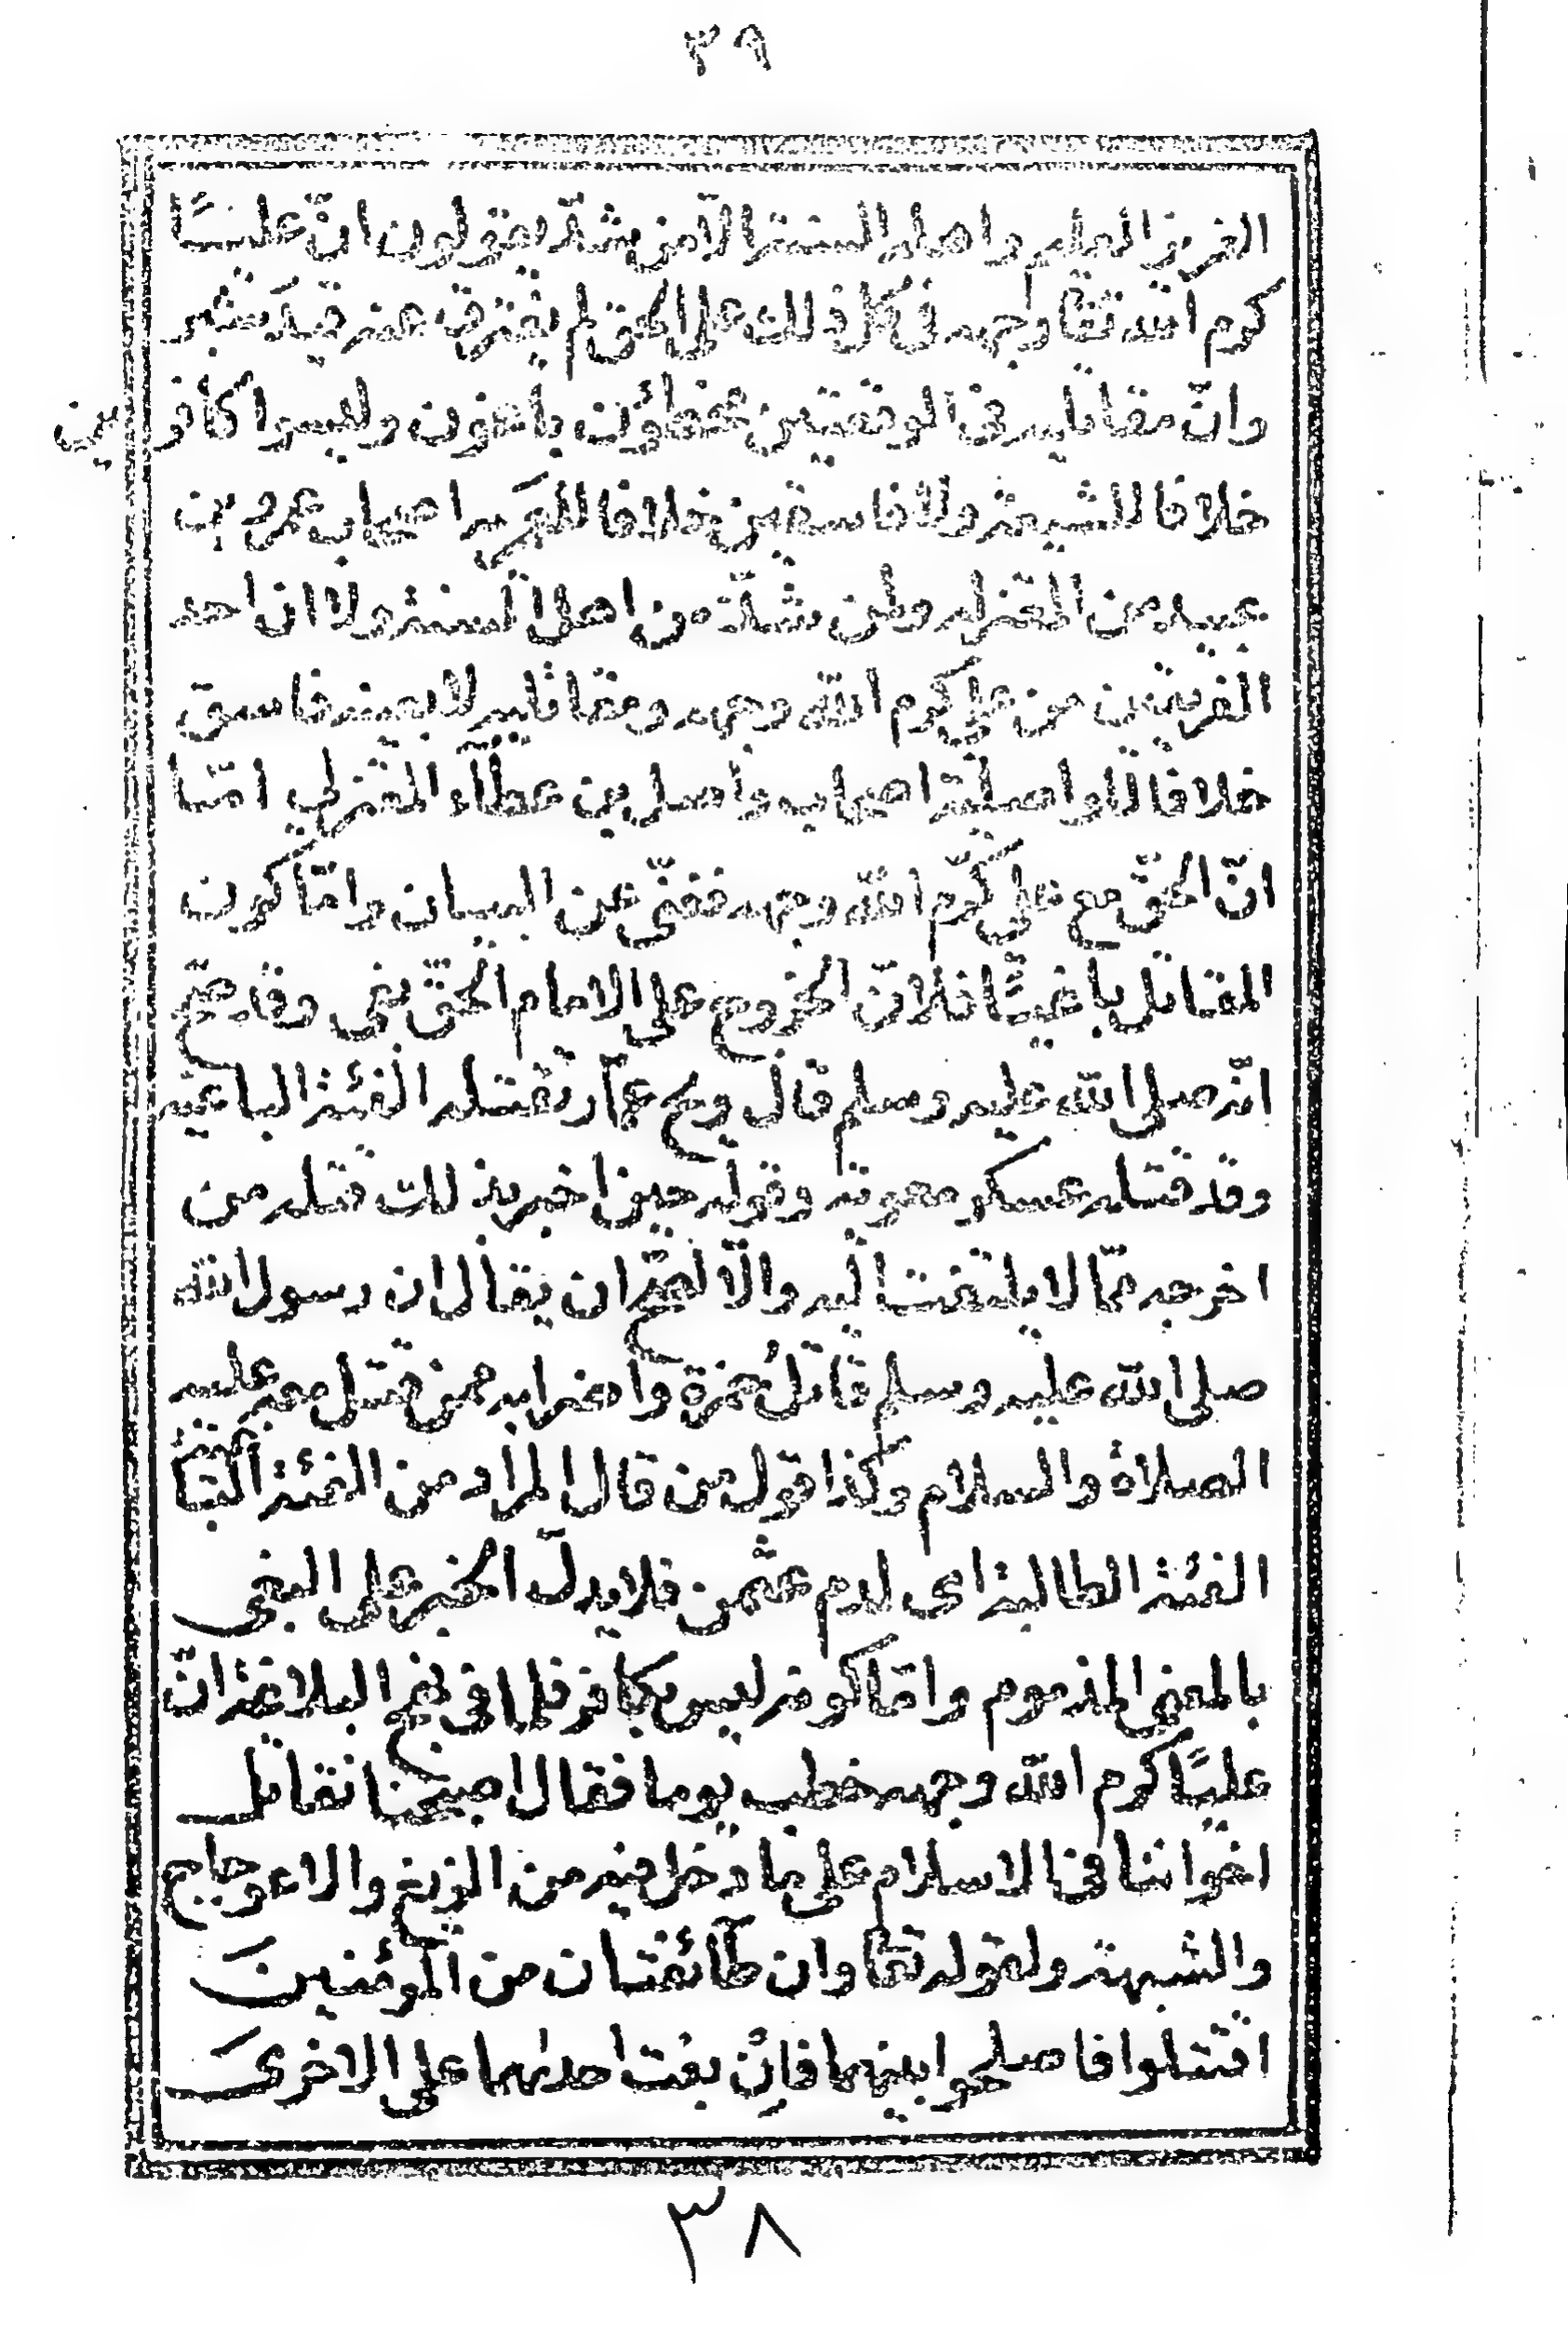 ٣٩
العزيز العليم واهل السنة الا من شذ يقولون ان عليًا
كرم الله تعا وجهه فى كل ذلك على الحق لم يفترق عنه قيد شبر
وانّ مقاتليه فى الوقعتين مخطؤن باغون وليسوا كافرين
خلافا للشيعة ولا فاسقين خلافا للعمرية اصحاب عمرو بن
عبيد من المعتزلة ولمن شذّ من اهل السنة ولا ان احد
الفريقين من على كرم الله وجهه ومقاتليه لا بعينه فاسق
خلافا للواصلية اصحاب واصل بن عطآء المعتزلي امّا
انّ الحقّ مع على كرّم الله وجهه فغنىّ عن البيان وامّا كون
المقاتل باغيًّا فلانّ الخروج على الامام الحقّ بغى وقد صحّ
انّه صلى الله عليه وسلم قال ويح عمّار تقتله الفئة الباغية
وقد قتله عسكر معوية وقوله حين اخبر بذلك قتله من
اخرجه ممّا لا يلتفت اليه والّا لصحّ ان يقال ان رسول الله
صلى الله عليه وسلم قاتلُ حمزة واضرابه ممن قتل معه عليه
الصلاة والسلام وكذا قول من قال المراد من الفئة الباغية
الفئة الطالبة اى لدم عثمن فلا يدلّ الخبر على البغى
بالمعنى المذموم وامّا كونه ليس بكافر فلما فى نهج البلاغة انّ
عليًّا كرم الله وجهه خطب يوما فقال اصبحنا نقاتل
اخواننا فى الاسلام على ما دخل فيه من الزيغ والاعوجاج
والشبهة ولقوله تعا وان طآئفتان من المؤمنينَ
اقتتلوا فاصلحوا بينهما فإن بغت احدٰىهما على الاخرى
٣٨